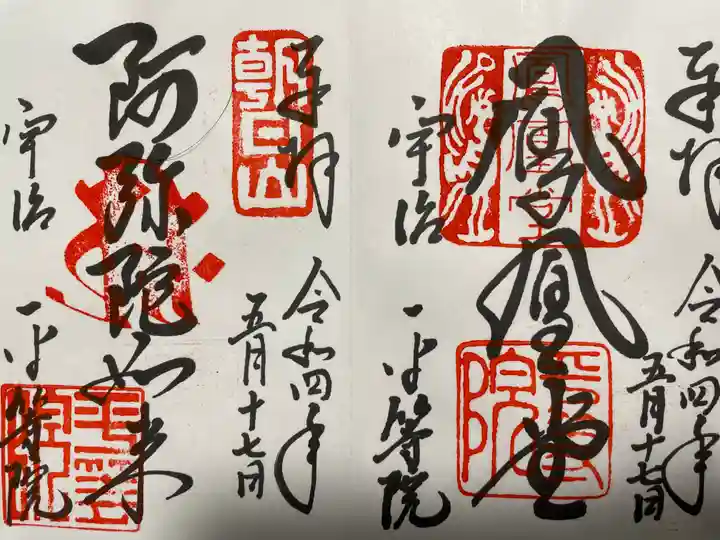 奉拝
令和四年
五月十七日
鳳凰堂
鳳凰堂
宇治
平等院
奉拝
令和四年
五月十七日
朝日山
阿弥陀如来
宇治
平等院
平等院